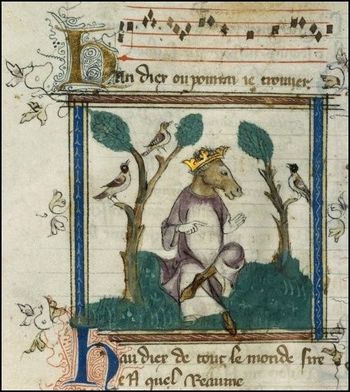 Han diex ou pourrai ie trouuer
Hau diex de tout le monde sire
et A quel Reaume